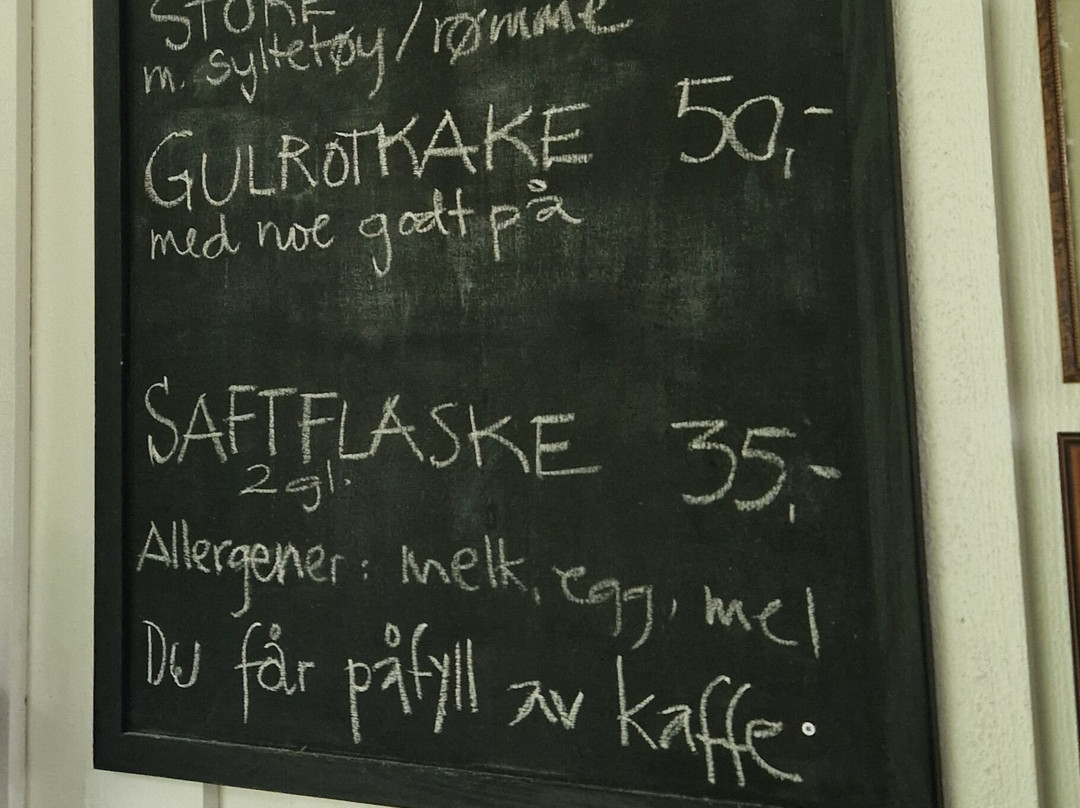 STORE
m. syltetøy/rømme
GULROTKAKE 50,-
med noe godt på
SAFTFLASKE 35,-
2 gl.
Allergener: melk, egg, mel
Du får påfyll av kaffe.